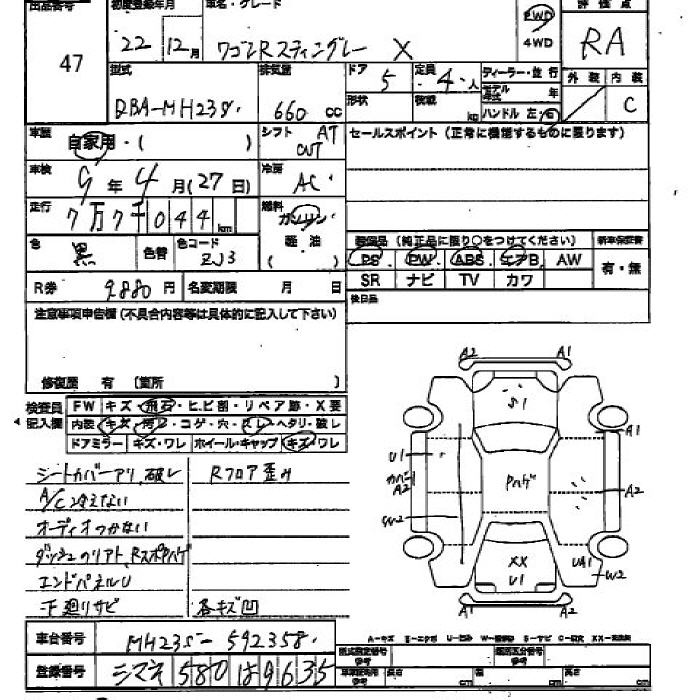 出品番号 初度登録年月 車名・グレード 評価点
47 22 12月 ワゴンRスティングレー X 2WD 4WD RA
型式 排気量 ドア 5 定員 4人 ディーラー・並行 外装 内装
DBA-MH23S 660 cc 形状 積載 kg モデル年式 年 C
ハンドル 左・右
車歴 自家用・( ) シフト AT CVT セールスポイント(正常に機能するものに限ります)
車検 9年4月(27日) 冷房 AC
走行 7万7千044km 燃料 ガソリン・軽油 ( )
色 黒 色替 色コード ZJ3
装備品 (純正品に限り○をつけてください) 新車保証書
PS PW ABS エアB AW 有・無
SR ナビ TV カワ
R券 9880円 名変期限 月 日 後日品
注意事項申告欄(不具合内容等は具体的に記入して下さい)
修復歴 有 (箇所 )
検査員記入欄 FW キズ・飛石・ヒビ割・リペア跡・X要
内装 キズ・汚レ・コゲ・穴・スレ・ヘタリ・破レ
ドアミラー キズ・ワレ ホイール・キャップ キズ・ワレ
シートカバーアリ、破レ Rフロア歪み
A/C冷えない
オーディオつかない
ダッシュクリアト、RスポPハゲ
エンドパネルU
下廻リサビ 各キズ凹
A2 A1
S1
A1
U1
カバー A2
Pハゲ
A2
W2
XX
U1
UA1
W2
A1 A2
A-キズ E-エクボ U-凹み W-補修跡 S-サビ C-腐食 XX-交換済
車台番号 MH23S-592358
型式指定番号 参考 類別区分番号 参考
登録番号 シマネ 580 は 9635
長さ cm 幅 cm 高さ cm